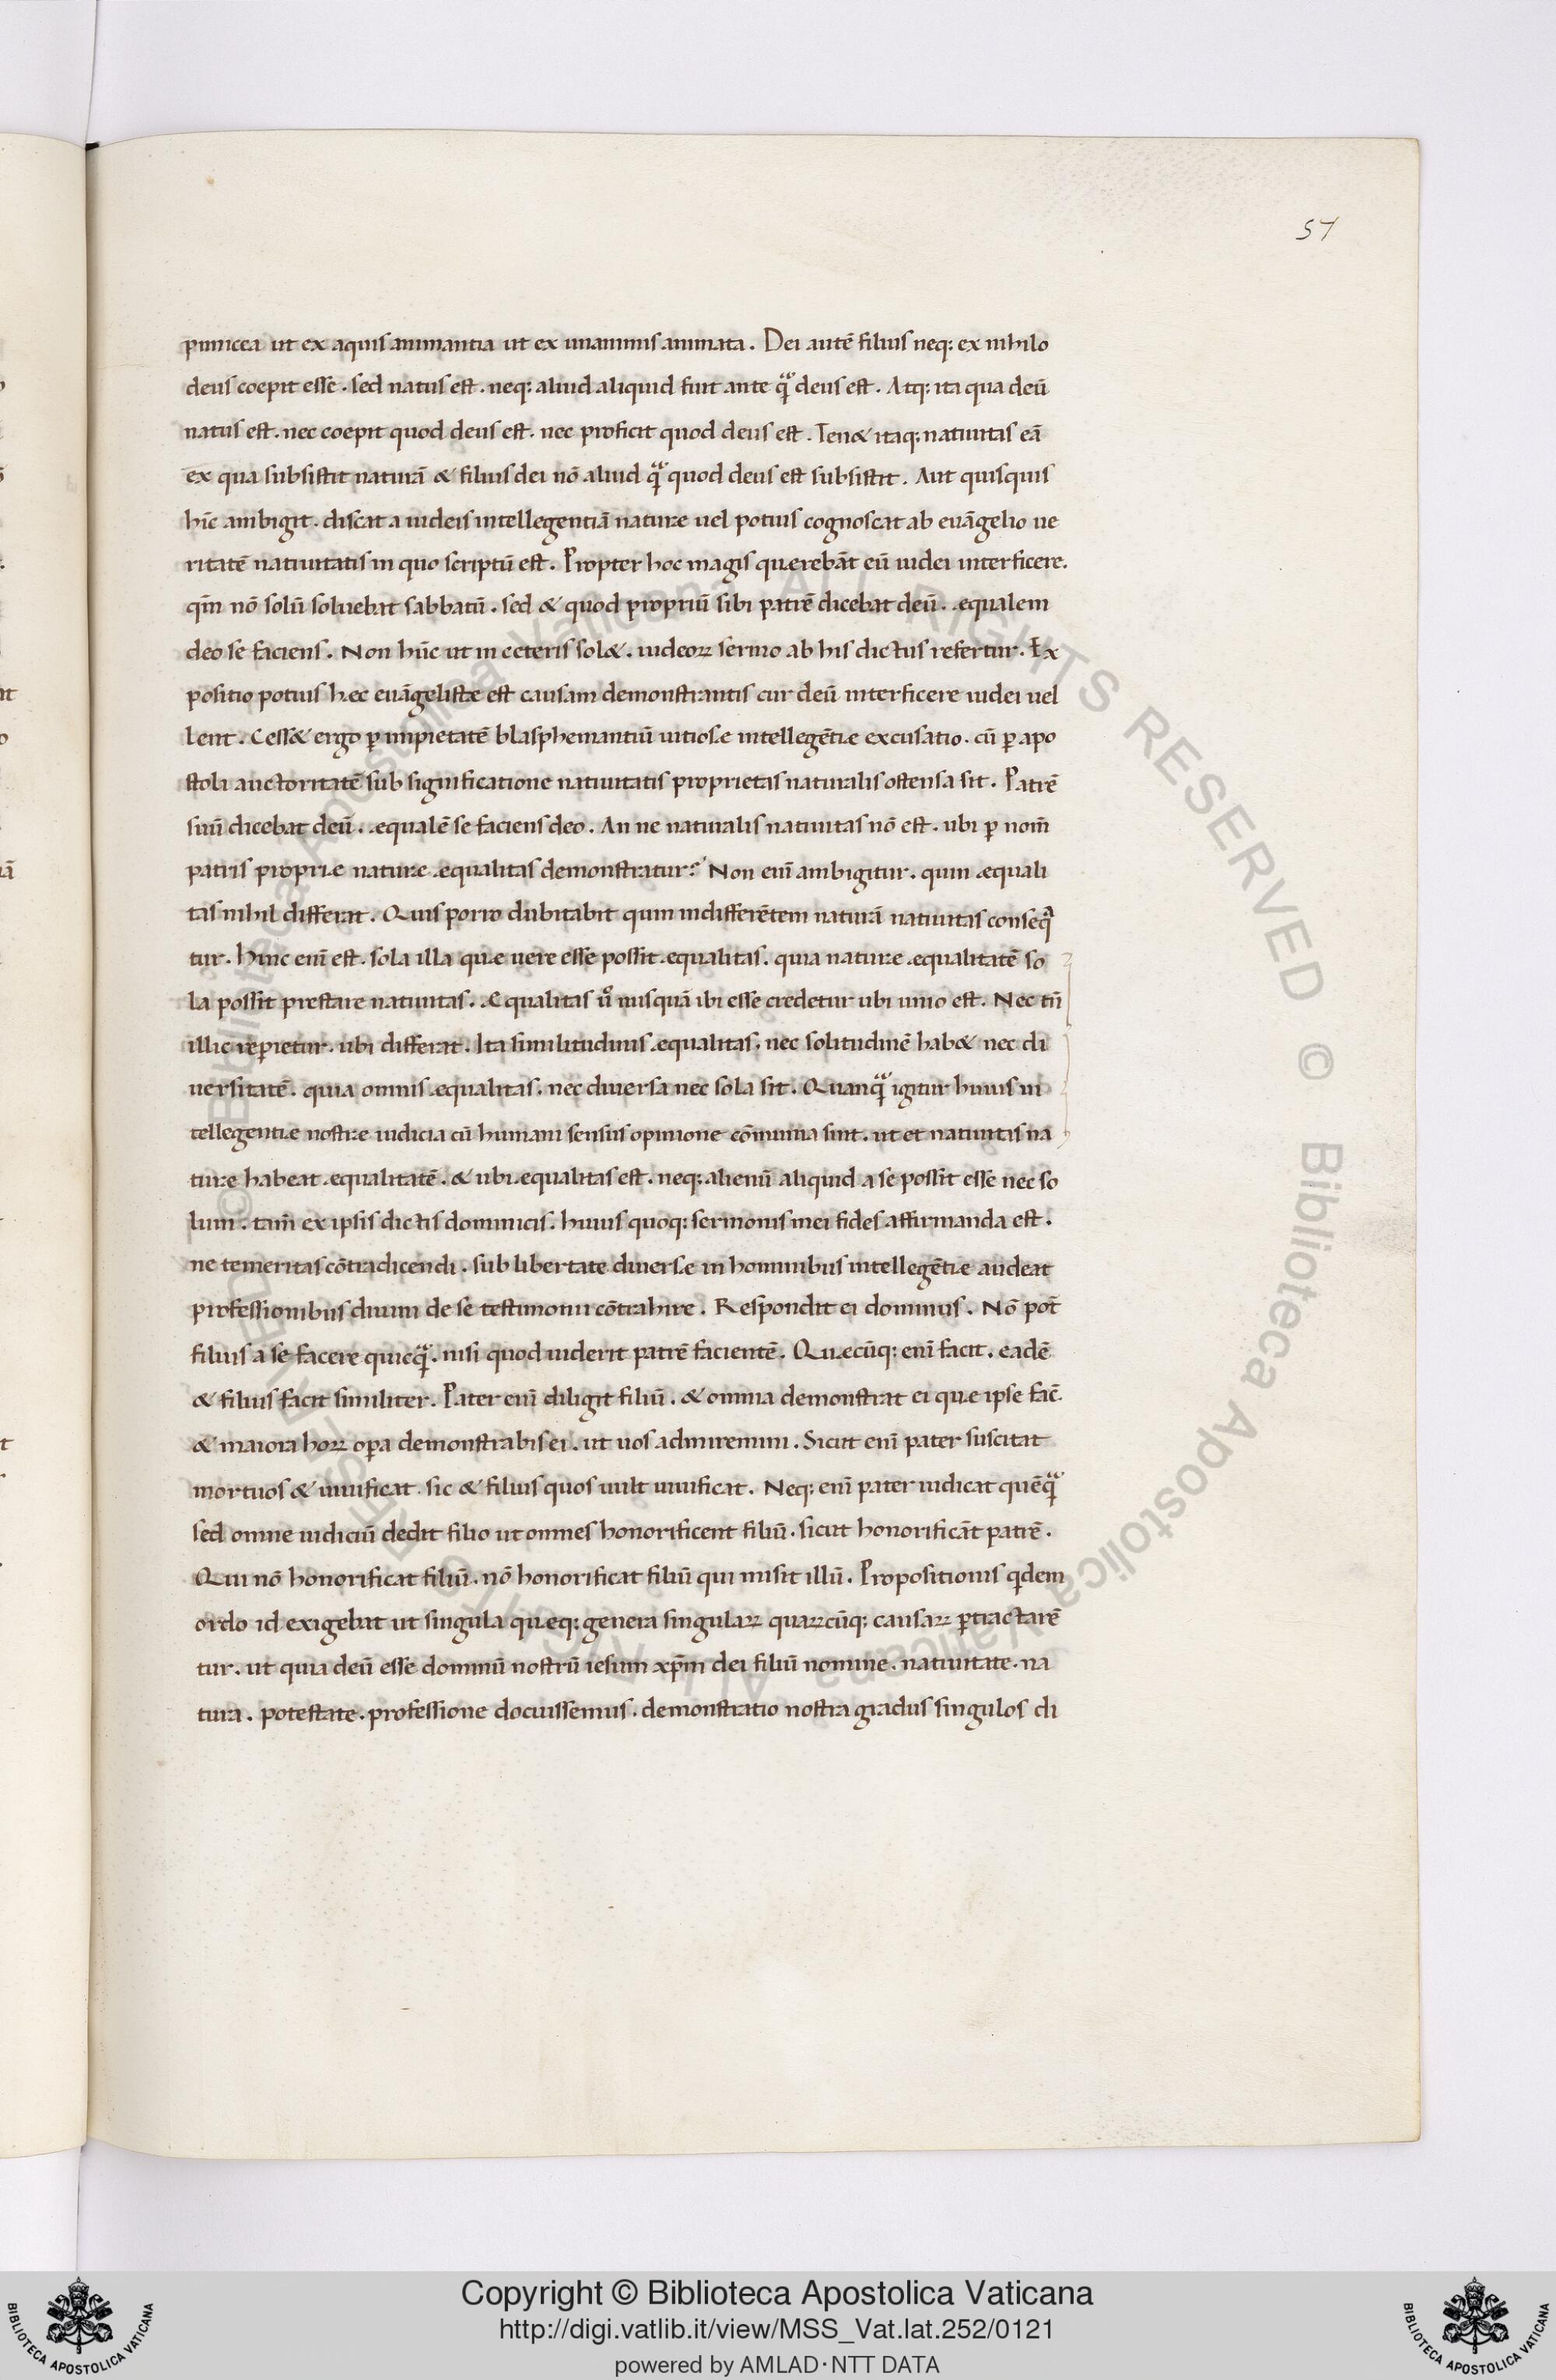 57
pimicea ut ex aquis animantia ut ex inanimis animata. Dei autē filius neq; ex nihilo
deus coepit esse. sed natus est. neq; aliud aliquid fuit ante qᵃ̄ deus est. Atq; ita qua deū
natus est. nec coepit quod deus est. nec proficit quod deus est. Ten& itaq; natiuitas eā
ex qua subsistit naturā & filius dei nō aliud qᵃ̄ quod deus est subsistit. Aut quisquis
hīc ambigit. discat a iudeis intellegentiā naturæ uel potius cognoscat ab euāgelio ue
ritatē natiuitatis in quo scriptū est. Propter hoc magis querebāt eū iudei interficere.
qm̄ nō solū soluebat sabbatū. sed & quod propriū sibi patrē dicebat deū. æqualem
deo se faciens. Non hūc ut in ceteris sol&. iudeoꝝ sermo ab his dictus refertur. Ex
positio potius hæc euāgelistæ est causam demonstrantis cur deū interficere iudei uel
lent. Cess& ergo ꝑ impietatē blasphemantiū uitiosæ intellegētiæ excusatio. cū ꝑ apo
stoli auctoritatē sub significatione natiuitatis proprietas naturalis ostensa sit. Patrē
suū dicebat deū. æqualē se faciens deo. An ne naturalis natiuitas nō est. ubi ꝑ nom̄
patris propriæ naturæ æqualitas demonstratur? Non enī ambigitur. quin æquali
tas nihil differat. Quis porro dubitabit quin indifferētem naturā natiuitas conseqᵃ
tur. Hinc enī est. sola illa quæ uere esse possit æqualitas. quia naturæ æqualitatē so
la possit prestare natiuitas. Æqualitas uͦ nusquā ibi esse credetur ubi unio est. Nec tn̄
illic reꝑietur. ubi differat. Ita similitudinis æqualitas. nec solitudinē hab& nec di
uersitatē. quia omnis æqualitas. nec diuersa nec sola sit. Quanqᵃ̄ igitur huius in
tellegentiæ nostræ iudicia cū humani sensus opinione cōmunia sint. ut et natiuitis na
turæ habeat æqualitatē. & ubi æqualitas est. neq; alienū aliquid a se possit esse nec so
lum. tam̄ ex ipsis dictis dominicis. huius quoq; sermonis mei fides affirmanda est.
ne temeritas cōtradicendi. sub libertate diuersæ in hominibus intellegētiæ audeat
professionibus diuini de se testimonii cōtrahire. Respondit ei dominus. Nō pot̄
filius a se facere quicqᵃ̄. nisi quod uiderit patrē facientē. Quæcūq; enī facit. eadē
& filius facit similiter. Pater enī diligit filiū. & omnia demonstrat ei quæ ipse fac̄.
& maiora hoꝝ oꝑa demonstrabis ei. ut uos admiremini. Sicut enī pater suscitat
mortuos & uiuificat sic & filius quos uult uiuificat. Neq; enī pater iudicat quēqᵃ̄
sed omne iudiciū dedit filio ut omnes honorificent filiū. sicut honorificāt patrē.
Qui nō honorificat filiū. nō honorificat filiū qui misit illū. Propositionis qⁱdem
ordo id exigebat ut singula quæq; genera singulaꝝ quaꝝcūq; causaꝝ ꝑtractarē
tur. ut quia deū esse dominū nostrū iesum xp̄m dei filiū nomine. natiuitate. na
tura. potestate. professione docuissemus. demonstratio nostra gradus singulos di
© Biblioteca Apostolica Vaticana ALL RIGHTS RESERVED © Biblioteca Apostolica Vaticana ALL RIGHTS RESERVED
Copyright © Biblioteca Apostolica Vaticana
http://digi.vatlib.it/view/MSS_Vat.lat.252/0121
powered by AMLAD·NTT DATA
BIBLIOTECA APOSTOLICA VATICANA
BIBLIOTECA APOSTOLICA VATICANA